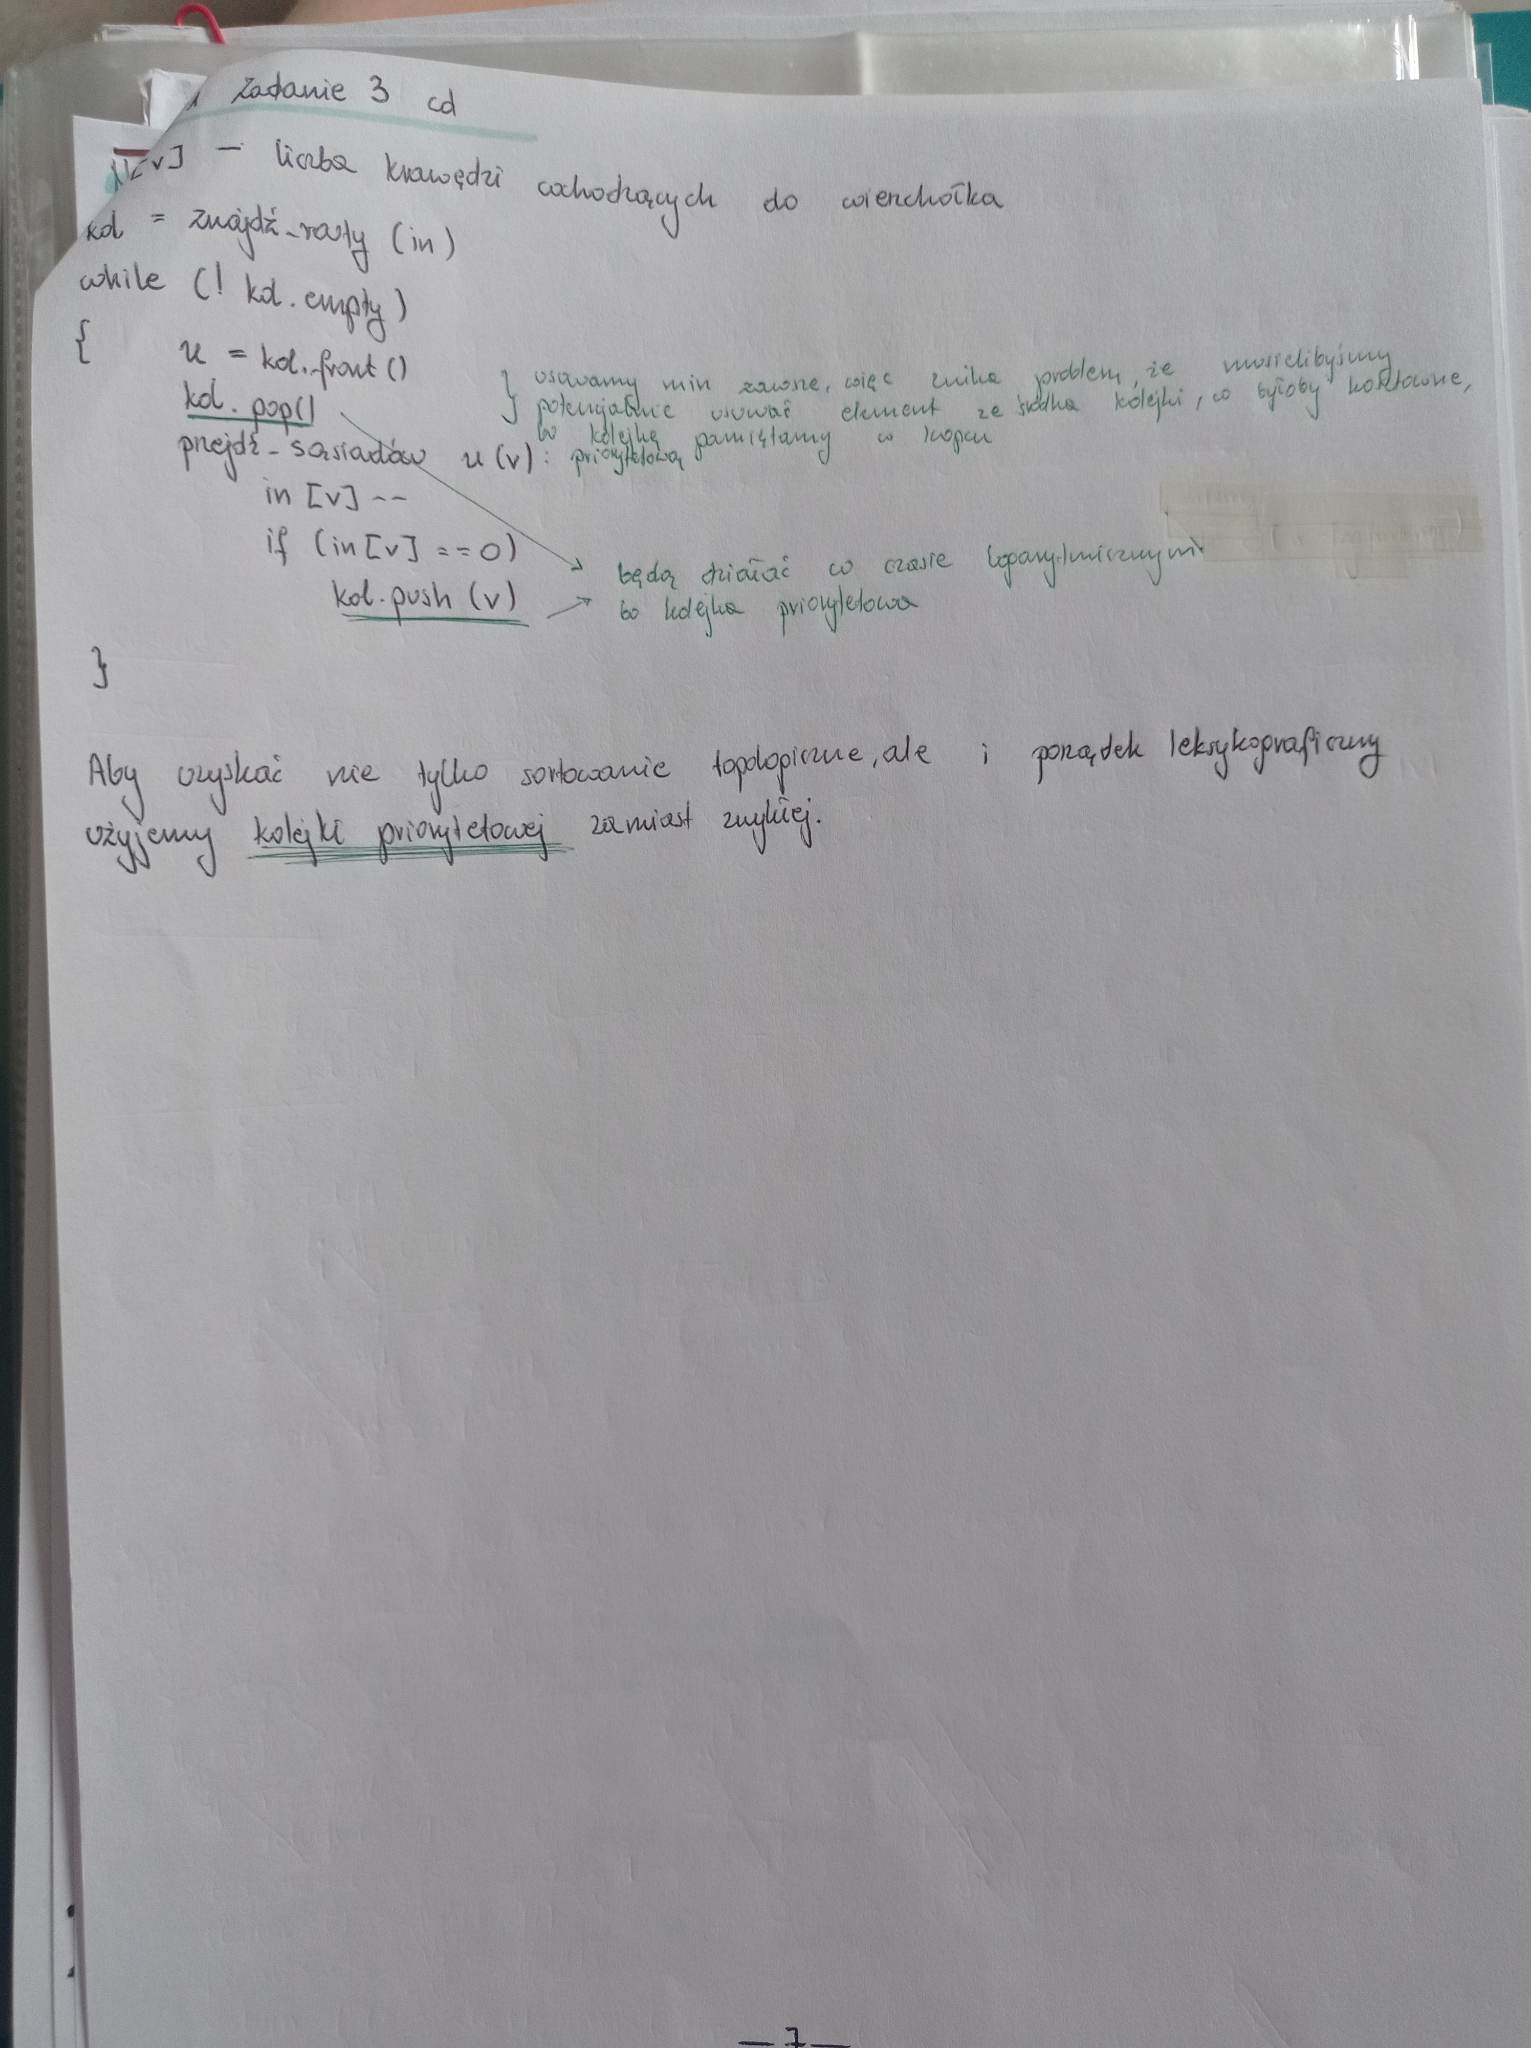 Zadanie 3 cd
[v] - liczba krawędzi wchodzących do wierzchołka
kol = znajdź_rooty (in)
while (! kol.empty)
{ u = kol.front()
kol.pop()
} usuwamy min zawsze, więc znika problem, że musielibyśmy
potencjalnie usuwać element ze środka kolejki, co byłoby kosztowne,
bo kolejkę pamiętamy w kopcu
priorytetową
przejdź_sąsiadów u (v):
in [v] --
if (in[v] == 0)
kol.push (v)
będą działać w czasie logarytmicznym
bo kolejka priorytetowa
}
Aby uzyskać nie tylko sortowanie topologiczne, ale i porządek leksykograficzny
użyjemy kolejki priorytetowej zamiast zwykłej.
— 7 —